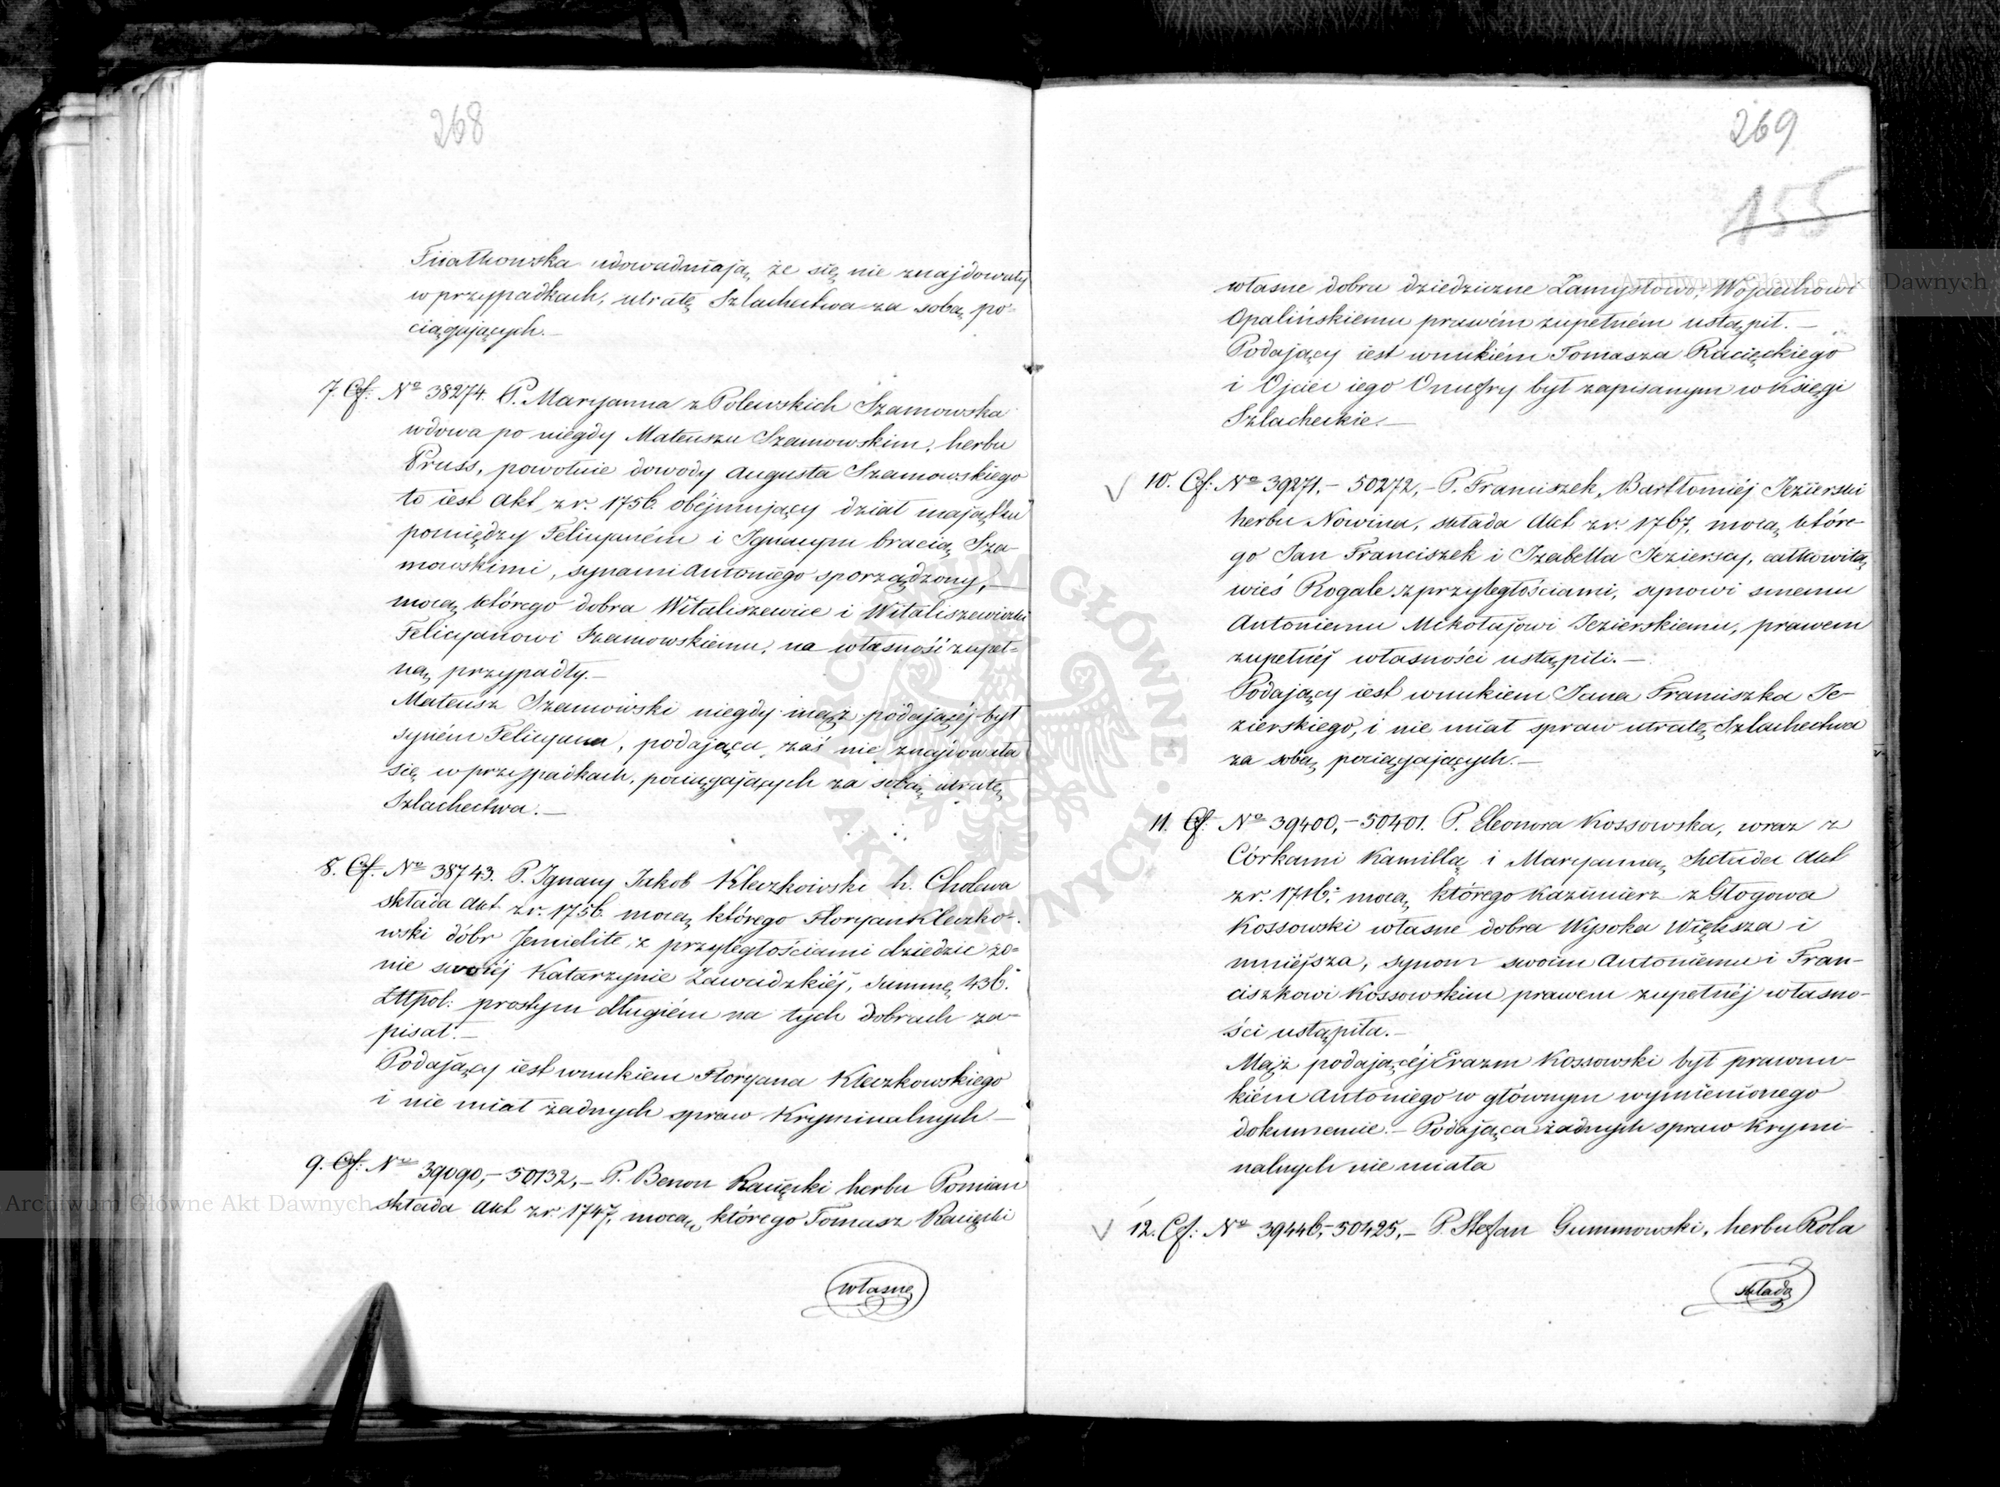 268
Fiiałkowska udowadniają, że się nie znajdowały
w przypadkach, utratę Szlachectwa za sobą po-
ciągających.—
7. Cf: No 38274. P. Maryanna z Polewskich Szamowska
wdowa po niegdy Mateuszu Szamowskim, herbu
Pruss, powołuie dowody Augusta Szamowskiego
to iest Akt z r. 1756. obéjmuiący dział maiątku
pomiędzy Felicyaném i Ignacym bracią Sza-
mowskimi, synami Antoniego sporządzony,—
mocą którego dobra Witaliszewice i Witaliszewiczki
Felicyanowi Szamowskiemu, na własność zupeł-
ną przypadły.—
Mateusz Szamowski niegdy mąż podaiącéj był
syném Felicyana, podaiąca zaś nie znajdowała
się w przypadkach, pociągaiących za sobą utratę
Szlachectwa.—
8. Cf. No 38743. P. Ignacy Jakob Kleczkowski h. Cholewa
składa Akt z r. 1756 mocą którego Floryan Kleczko-
wski dóbr Jemielite z przyległościami dziedzic żo-
nie swoiéj Katarzynie Zawadzkiéj, summę 436.
Złtpol: prostym długiém na tych dobrach za-
pisał.—
Podaiący iest wnukiem Floryana Kleczkowskiego
i nie miał żadnych spraw Kryminalnych—
9. Cf: No 39090,—50132,— P. Benon Racięcki herbu Pomian
składa Akt z r. 1747, mocą którego Tomasz Racięcki
własne
269
155
własne dobra dziedziczne Zamysłowo, Wojciechowi
Opalińskiemu prawém zupełném ustąpił.—
Podaiący iest wnukiém Tomasza Racięckiego
i Ojciec iego Onufry był zapisanym w Księgi
Szlacheckie.—
10. Cf: No 39271,—50272,— P. Franciszek, Bartłomiéj Jezierski
herbu Nowina, składa Akt z r. 1767, mocą które-
go Jan Franciszek i Izabella Jezierscy, całkowitą
wieś Rogale z przyległościami, synowi swemu
Antoniemu Mikołajowi Jezierskiemu, prawem
zupełnéj własności ustąpili.—
Podaiący iest wnukiem Jana Franciszka Je-
zierskiego, i nie miał spraw utratę Szlachectwa
za sobą pociągających.—
11. Cf: No 39400,—50401. P. Eleonora Kossowska, wraz z
Córkami Kamillą i Maryanną składa Akt
z r. 1716: mocą którego Kazimierz z Głogowa
Kossowski własne dobra Wysoka Większa i
mniejsza, synom swoim Antoniemu i Fran-
ciszkowi Kossowskim prawem zupełnéj własno-
ści ustąpiła.—
Mąż podaiącéj Erazm Kossowski był prawnu-
kiém Antoniego w głównym wymienionego
dokumencie.— Podaiąca żadnych spraw Krymi-
nalnych nie miała
12. Cf: No 39446,—50425,— P. Stefan Gummowski, herbu Rola
składa
Archiwum Główne Akt Dawnych
Archiwum Główne Akt Dawnych
ARCHIWUM GŁÓWNE AKT DAWNYCH